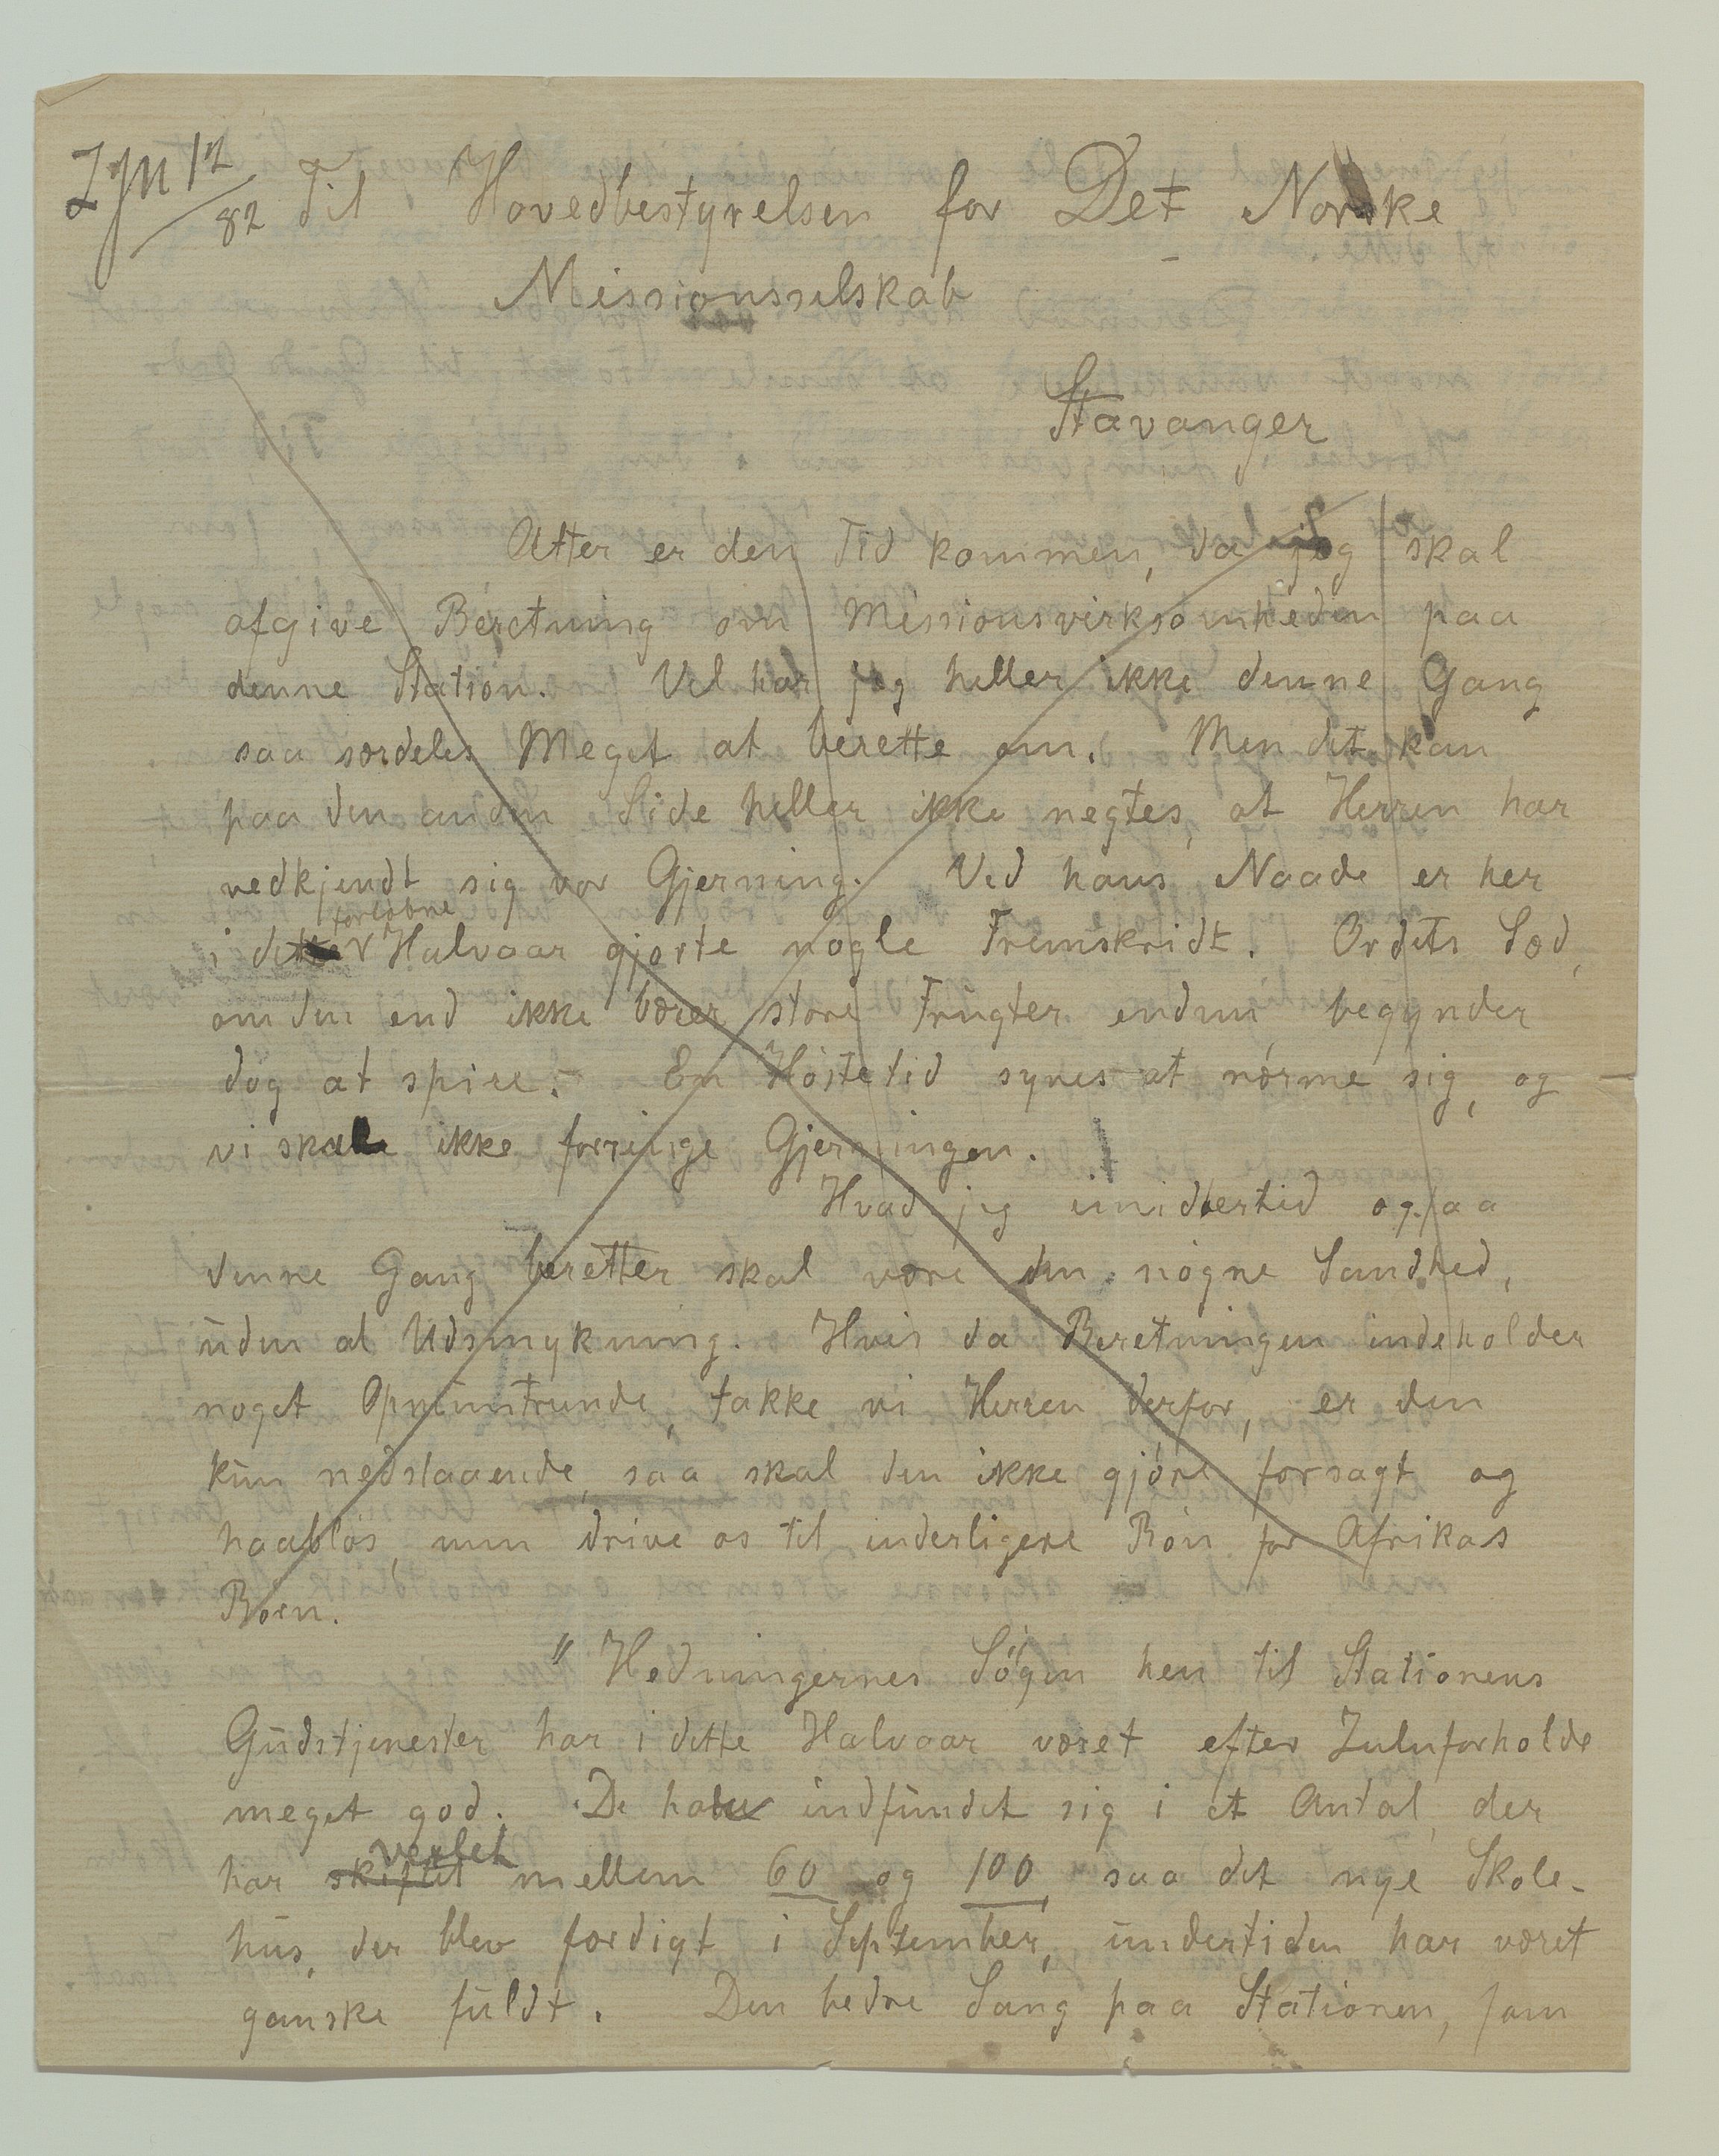 Til Hovedbestyrelsen for Det Norske
82
Missionsselskab
Stavanger
Atter er den Tid kommen, da jeg skal
afgive Beretning om Missionsvirksomheden paa
denne Station. Vel har jeg heller ikke denne Gang
saa særdeles Meget at berette om. Men det kan
paa den anden Side heller ikke negtes, at Herren har
vedkjendt sig vor Gjerning. Ved hans Naade er her
forløbne
i det Halvaar gjorte nogle Fremskridt. Ordets Sæd,
om den end ikke bærer store Frugter endnu, begynder
dog at spire. En Høstetid synes at nærme sig, og
vi skal ikke forringe Gjerningen.
Hvad jeg imidlertid ogsaa
denne Gang beretter skal være den nøgne Sandhed,
uden al Udsmykning. Hvis da Beretningen indeholder
noget Opmuntrende, takke vi Herren derfor, er den
kun nedslaaende, saa skal den ikke gjøre forsagt og
haabløs, men drive os til inderligere Bøn for Afrikas
Børn.
" Hedningernes Søgen hen til Stationens
Gudstjenester har i dette Halvaar været efter Zuluforholde
meget god. De har indfundet sig i et Antal, der
vexlet
har skiftet mellem 60 og 100, saa det nye Skole-
hus, der blev færdigt i September, undertiden har været
ganske fuldt. Den bedre Sang paa Stationen, som